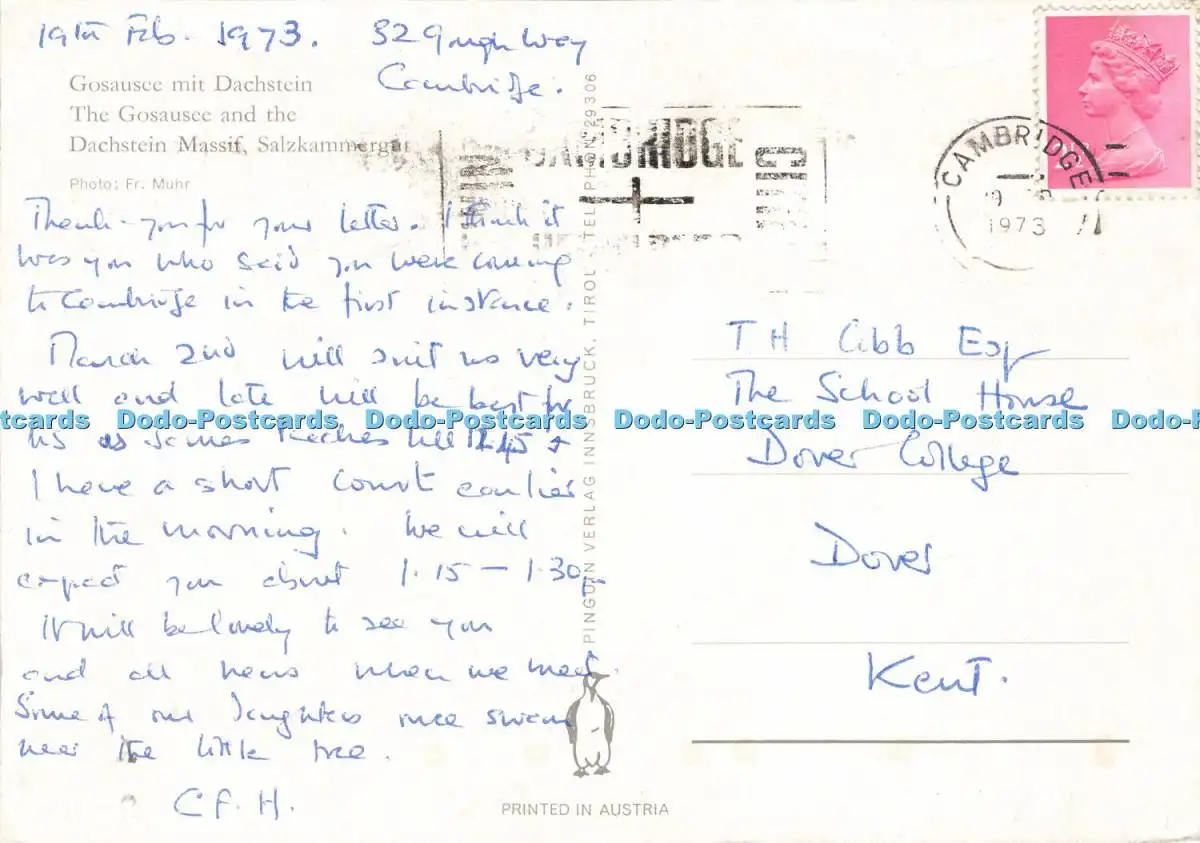 19th Feb. 1973. 32 Gough Way
Cambridge.
Gosausee mit Dachstein
The Gosausee and the
Dachstein Massif, Salzkammergut
Photo: Fr. Muhr
Thank-you for your letter. I think it
was you who said you were coming
to Cambridge in the first instance.
March 2nd will suit us very
well and late will be best for
us as James teaches till 12.45 &
I have a short court earlier
in the morning. We will
expect you about 1.15 – 1.30
It will be lovely to see you
and all news when we meet.
Some of our daughters once swam
near the little tree.
C F. H.
CAMBRIDGE
CAMBRIDGE
1973
T H Cobb Esq
The School House
Dover College
Dover
Kent.
PINGUIN VERLAG INNSBRUCK, TIROL - TELEPHON 29306
PRINTED IN AUSTRIA
Dodo-Postcards Dodo-Postcards Dodo-Postcards Dodo-Postcards Dodo-Postcards Dodo-Postcards